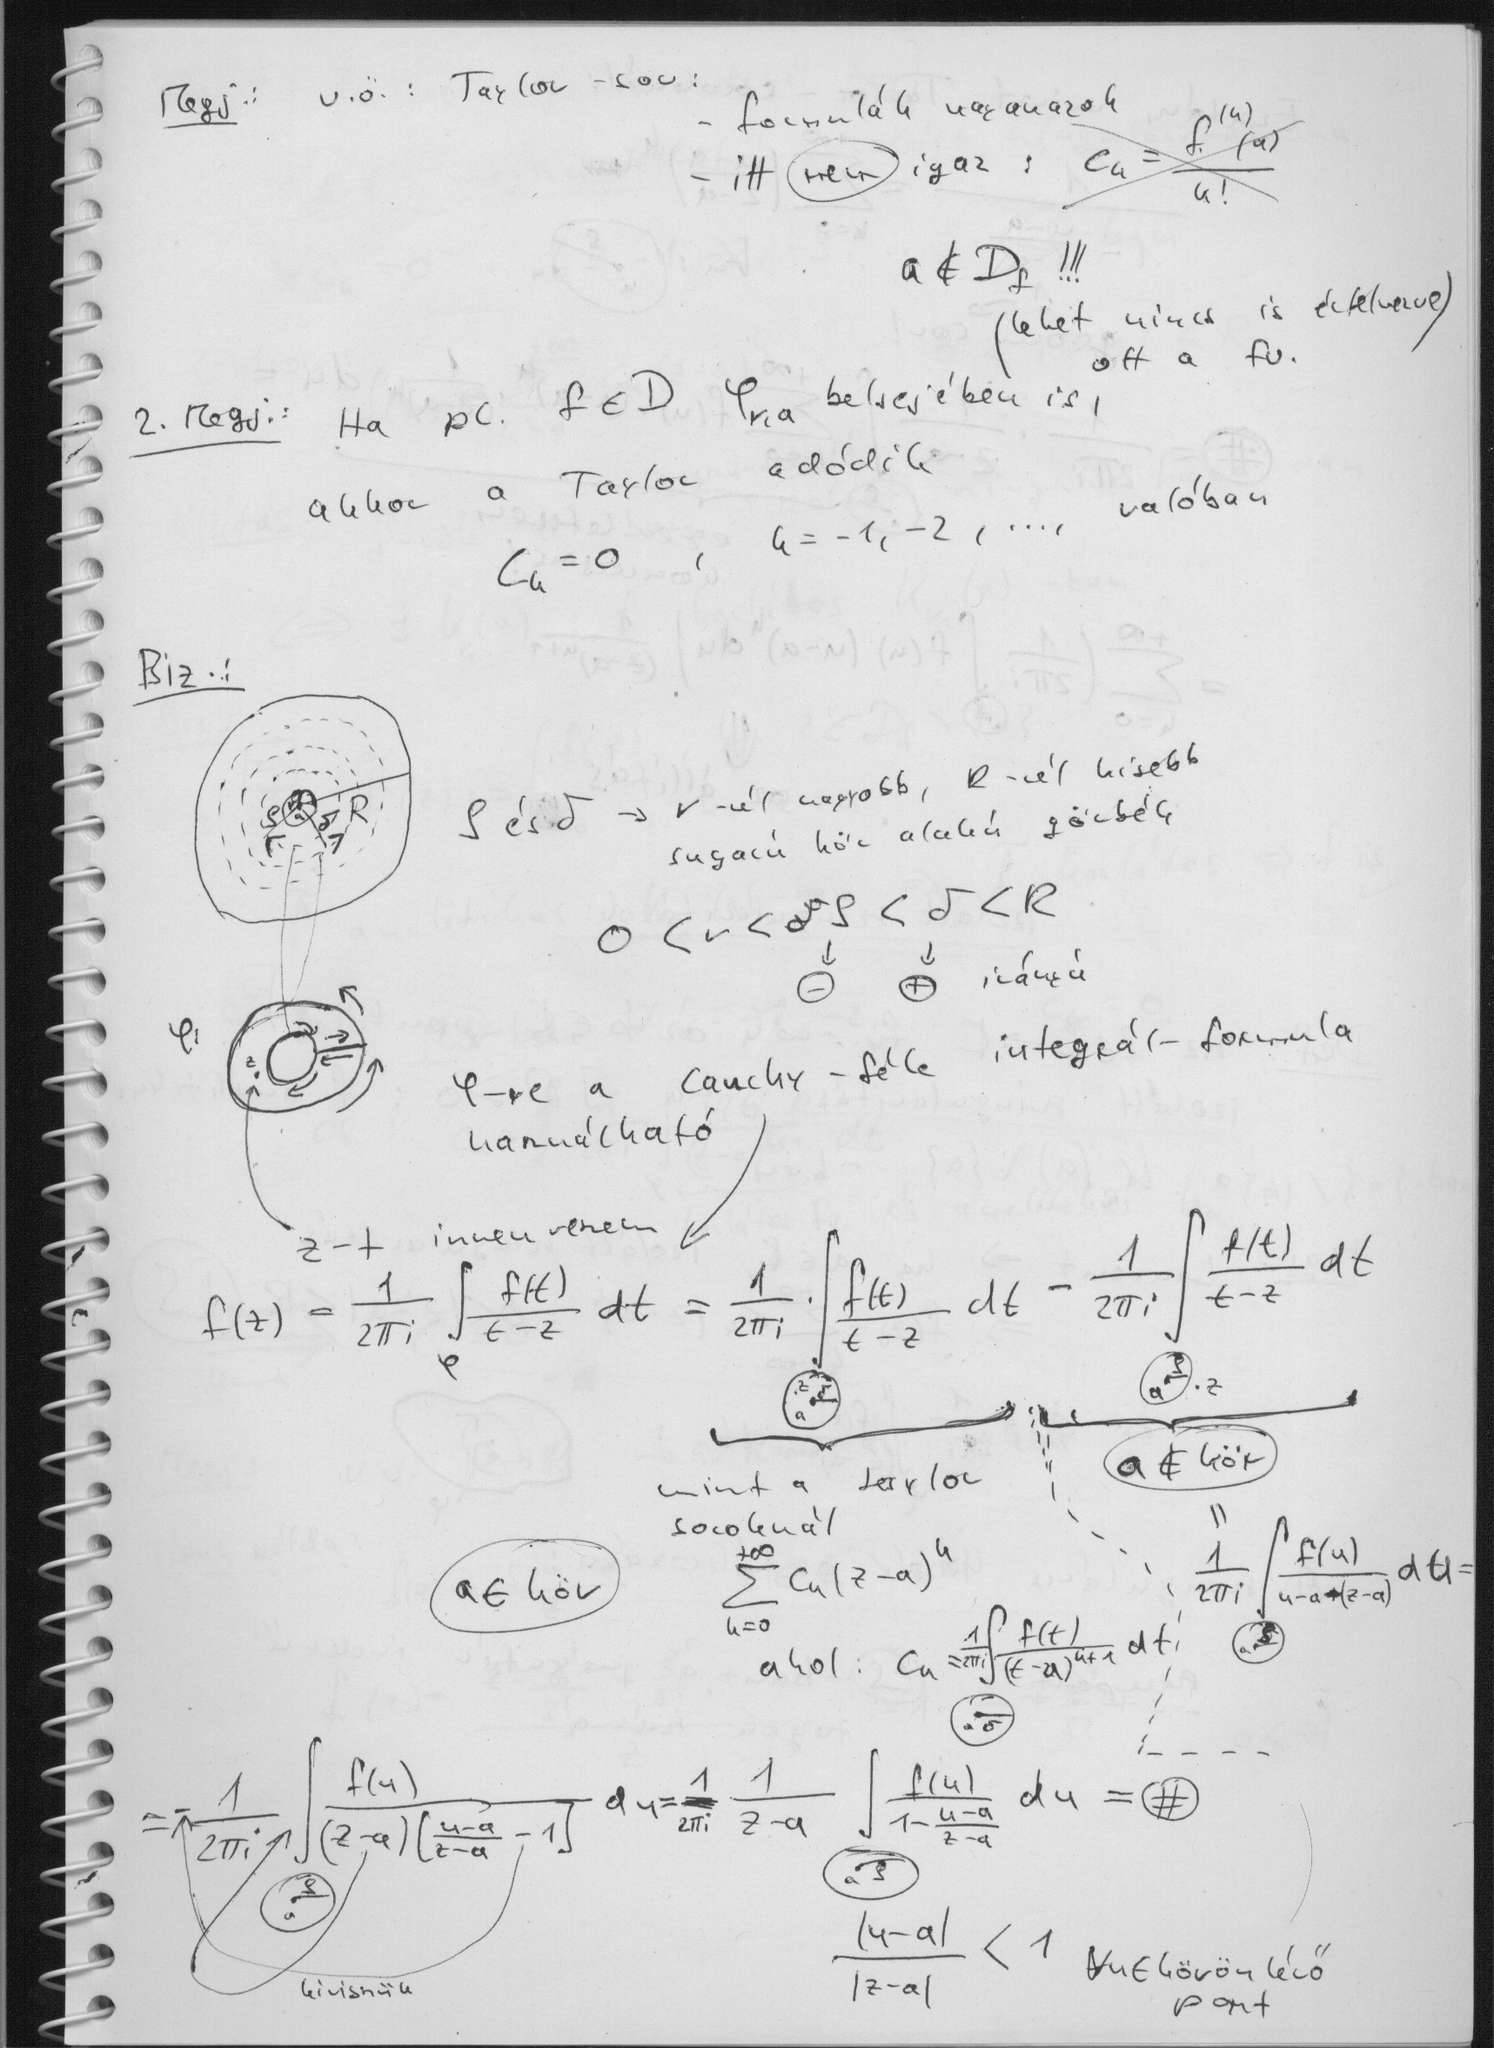 Megj.: v.ö.: Taylor-sor:
- formulák ugyanazok
- itt nem igaz : c_k = f^(k)(a) / k!
a ∉ D_f !!!
(lehet nincs is értelmezve
ott a fv.
2. Megj.: Ha pl. f ∈ D φ_r,a belsejében is,
akkor a Taylor adódik
C_k = 0 , k = -1, -2, ..., valóban
Biz.:
ρ δ R
ρ és δ → r-nél nagyobb, R-nél kisebb
sugarú kör alakú görbék
0 < r < ρ < δ < R
⊖ ⊕ irányú
φ:
z
φ-re a Cauchy-féle integrál-formula
használható
z-t innen veszem
f(z) = 1/2πi ∫_φ f(t)/(t-z) dt = 1/2πi · ∫ f(t)/(t-z) dt - 1/2πi ∫ f(t)/(t-z) dt
z δ a
a ρ . z
mint a Taylor
a ∉ kör
soroknál
a ∈ kör
+∞ Σ k=0 c_k (z-a)^k
= 1/2πi ∫ f(u)/(u-a-(z-a)) du =
a ρ
ahol: c_k = 1/2πi ∫ f(t)/(t-a)^(k+1) dt
a δ
= - 1/2πi ∫ f(u)/((z-a)[(u-a)/(z-a) - 1]) du = 1/2πi 1/(z-a) ∫ f(u)/(1 - (u-a)/(z-a)) du = #
a ρ
a ρ
kivisszük
|u-a|/|z-a| < 1 ∀u ∈ körön lévő
pont